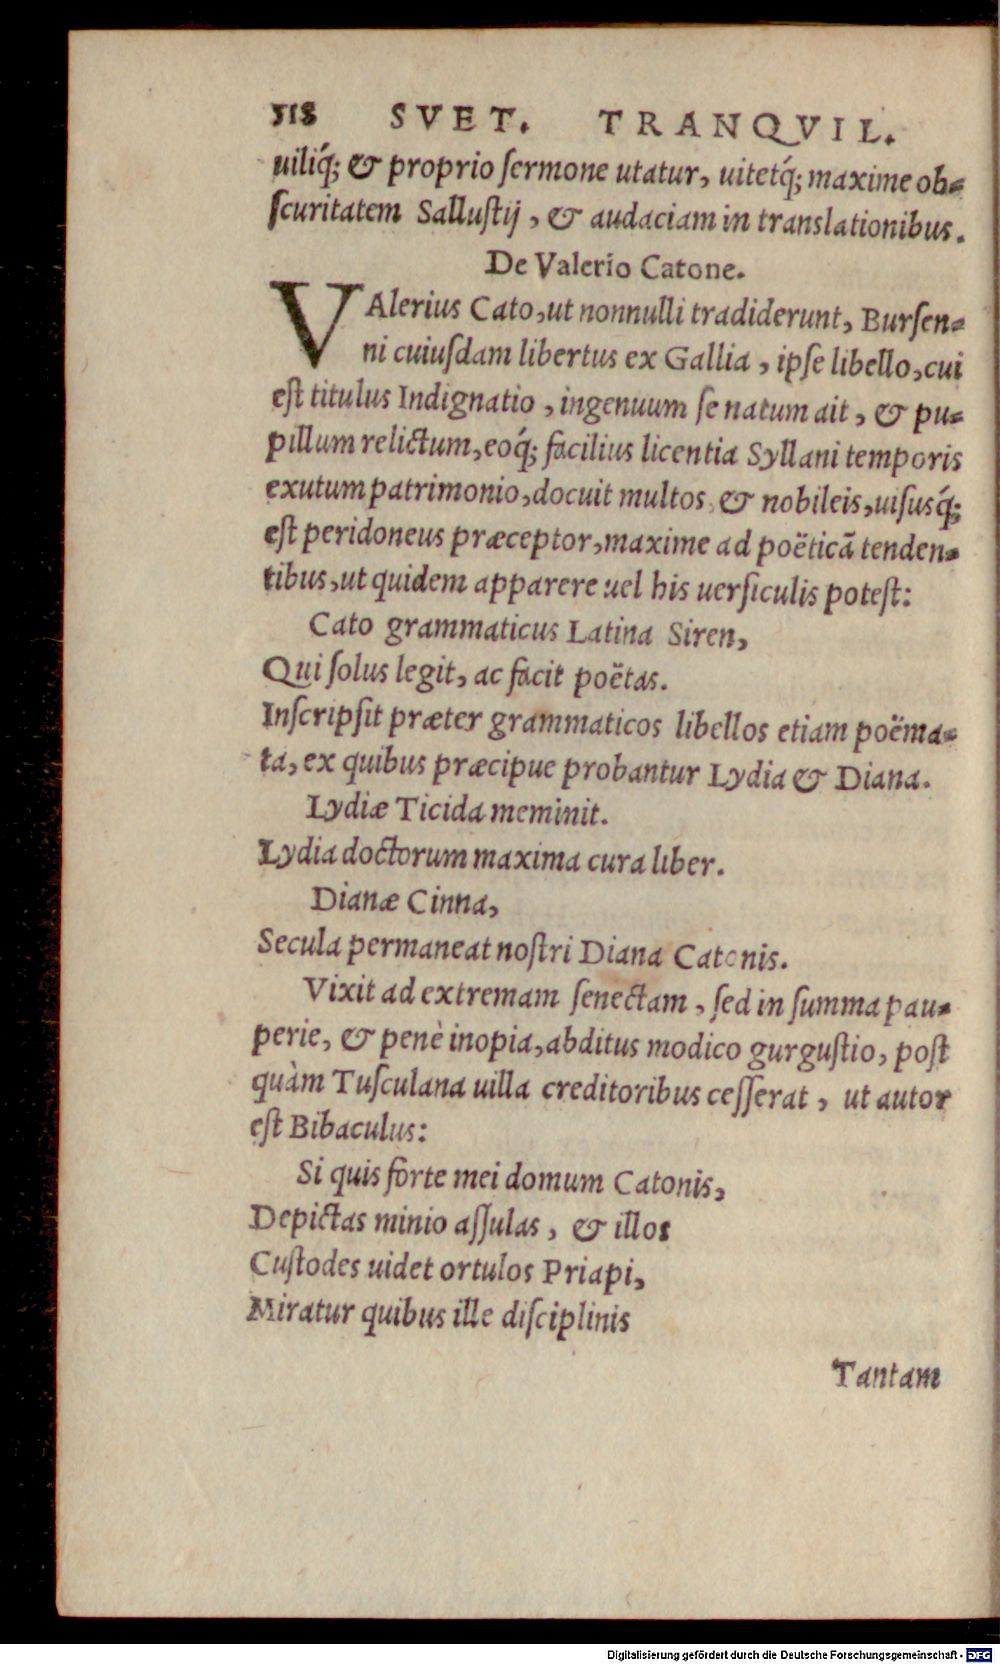 518 SVET. TRANQVIL.
uiliq́; & proprio ſermone utatur, uitetq́; maxime ob-
ſcuritatem Salluſtij, & audaciam in translationibus.
De Valerio Catone.
VAlerius Cato, ut nonnulli tradiderunt, Burſen-
ni cuiuſdam libertus ex Gallia, ipſe libello, cui
eſt titulus Indignatio, ingenuum ſe natum ait, & pu-
pillum relictum, eoq́; facilius licentia Syllani temporis
exutum patrimonio, docuit multos, & nobileis, uiſusq́;
eſt peridoneus præceptor, maxime ad poëticã tenden-
tibus, ut quidem apparere uel his uerſiculis poteſt:
Cato grammaticus Latina Siren,
Qui ſolus legit, ac facit poëtas.
Inſcripſit præter grammaticos libellos etiam poëma-
ta, ex quibus præcipue probantur Lydia & Diana.
Lydiæ Ticida meminit.
Lydia doctorum maxima cura liber.
Dianæ Cinna,
Secula permaneat noſtri Diana Catonis.
Vixit ad extremam ſenectam, ſed in ſumma pau-
perie, & penè inopia, abditus modico gurguſtio, poſt
quàm Tuſculana uilla creditoribus ceſſerat, ut autor
eſt Bibaculus:
Si quis forte mei domum Catonis,
Depictas minio aſſulas, & illos
Cuſtodes uidet ortulos Priapi,
Miratur quibus ille diſciplinis
Tantam
Digitalisierung gefördert durch die Deutsche Forschungsgemeinschaft - DFG